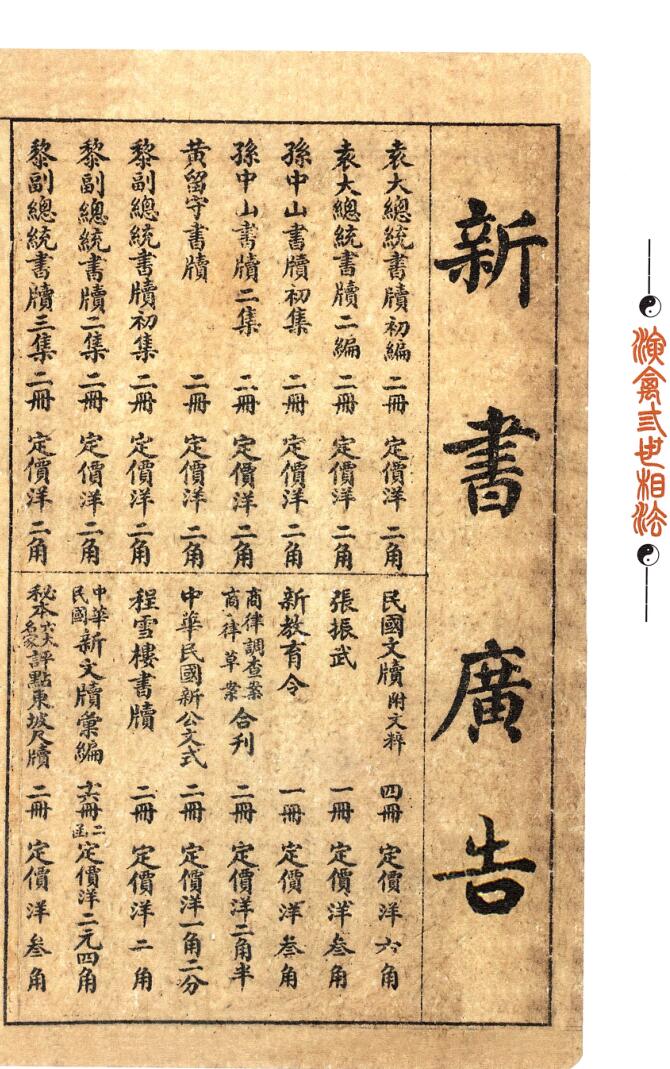 演禽三世相法
新書廣告
袁大總統書牘初編 二冊 定價洋 二角
袁大總統書牘二編 二冊 定價洋 二角
孫中山書牘初集 二冊 定價洋 二角
孫中山書牘二集 二冊 定價洋 二角
黃留守書牘 二冊 定價洋 二角
黎副總統書牘初集 二冊 定價洋 二角
黎副總統書牘二集 二冊 定價洋 二角
黎副總統書牘三集 二冊 定價洋 二角
民國文牘 附文粹 四冊 定價洋 六角
張振武 一冊 定價洋 叁角
新教育令 一冊 定價洋 叁角
商律調查案 商律草案 合刊 二冊 定價洋二角半
中華民國新公文式 二冊 定價洋一角二分
程雪樓書牘 二冊 定價洋 二角
中華民國新文牘彙編 十六冊二函 定價洋二元四角
秘本六大名家評點東坡尺牘 二冊 定價洋 叁角